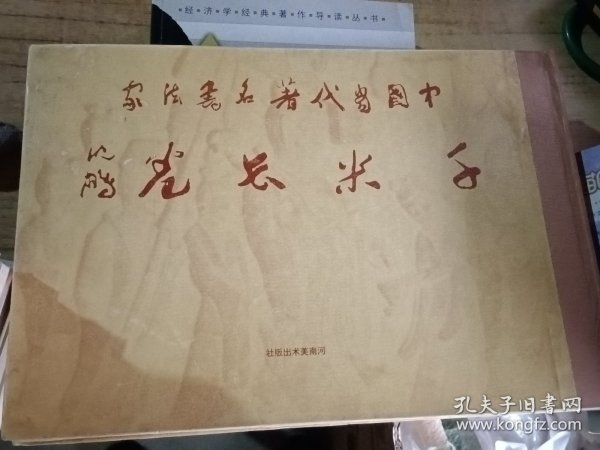 ·经·济·学·经·典·著·作·导·读·丛·书·
中國當代著名書法家
千米长卷
河南美术出版社
孔夫子旧书网
www.kongfz.com